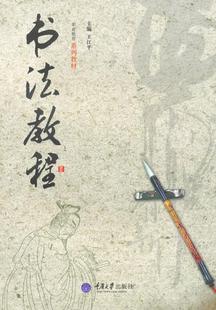 主编 王江平
系列教材
书法教程
重庆大学出版社